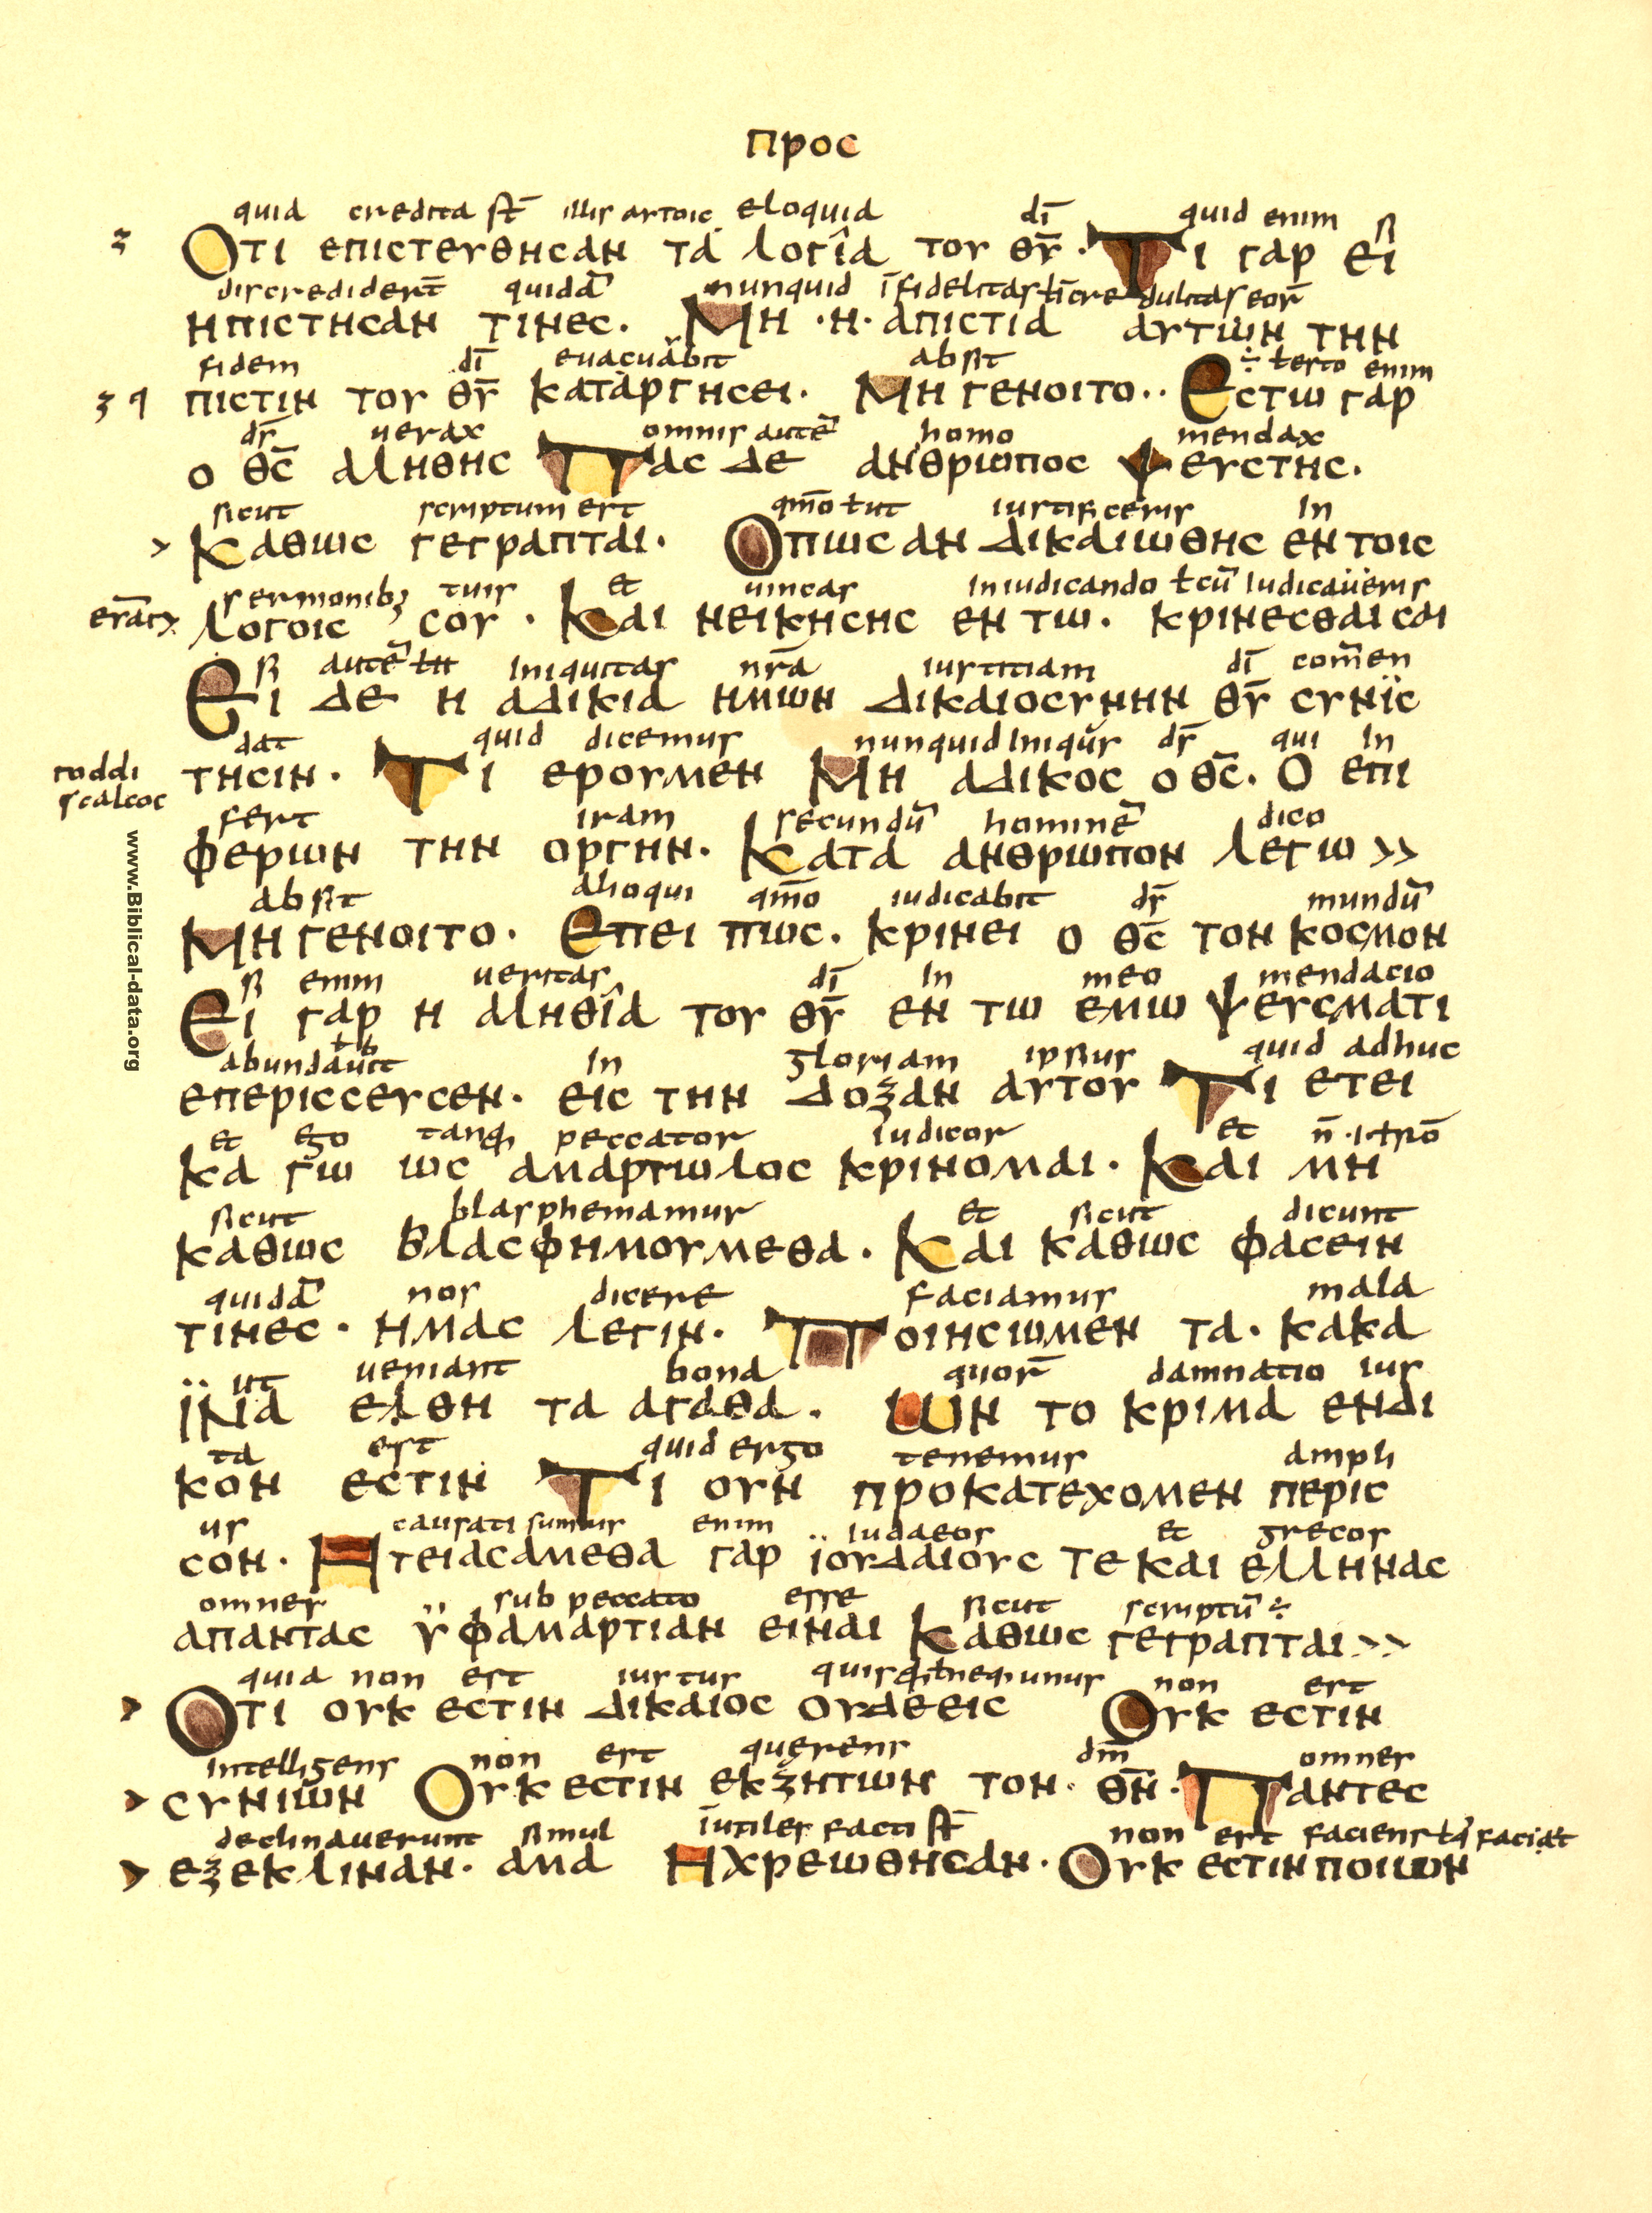 προς
quia credita s̅t̅ illis αυτοις eloquia d̅i̅ quid enim si
Οτι επιστευθησαν τα λογια του θ̅υ̅ · Τι γαρ ει
discredidert̅ quida̅ nunquid i̅fidelitas ł i̅credulitas eor̅
ηπιστησαν τινες. Μη ·η· απιστια αυτων την
fidem d̅i̅ evacuabit absit ÷ ł esto enim
πιστιν του θ̅υ̅ καταργησει. Μη γενοιτο·· Εστω γαρ
d̅s̅ uerax omnis aute̅ homo mendax
ο θ̅ς̅ αληθης Πας δε ανθρωπος ψευστης.
sicut scriptum est q̅m̅o ł ut iustificeris in
> Καθως γεγραπται· Οπως αν δικαιωθης εν τοις
sermonib; tuis et uincas in iudicando ł cu̅ iudicaueris
λογοις σου · Και νεικησης εν τω. κρινεσθαι σαι
si aute̅ iniquitas n̅r̅a iustitiam d̅i̅ com̅en
Ει δε η αδικια ημων δικαιοσυνην θ̅υ̅ συνϊς
dat quid dicemus nunquid iniqus d̅s̅ qui in
τησιν · Τι ερουμεν Μη αδικος ο θ̅ς̅. Ο επι
fert iram secundu̅ homine̅ dico
φερων την οργην. Κατα ανθρωπον λεγω >>
absit alioqui q̅m̅o iudicabit d̅s̅ mundu̅
Μη γενοιτο· Επει πως. κρινει ο θ̅ς̅ τον κοσμον
si enim ueritas d̅i̅ in meo mendacio
Ει γαρ η αληθια του θ̅υ̅ εν τω εμω ψευσματι
abundauit in gloriam ipsius quid adhuc
επερισσευσεν· εις την δοξαν αυτου Τι ετει
et ego tanq̅ peccator iudicor et n̅
κα γω ως αμαρτωλος κρινομαι· Και μη
sicut blasphemamur et sicut dicunt
καθως βλασφημουμεθα · Και καθως φασειν
quida̅ nos dicere faciamus mala
τινες · ημας λεγιν. Ποιησωμεν τα· κακα
ut ueniant bona quor̅ damnatio ius
ϊΝα ελθη τα αγαθα. Ων το κριμα ενδι
ta est quid ergo tenemus ampli
κον εστιν Τι ουν προκατεχομεν περισ
us causati sumus enim iudaeos et grecos
σον· Ητειασαμεθα γαρ ϊουδαιους τε και ελληνας
omnes sub peccato esse sicut scriptu̅ ÷
απαντας ϋφαμαρτιαν ειναι Καθως γεγραπται>>
quia non est iustus quisq̅ ł neq; unus non est
> Οτι ουκ εστιν δικαιος ουδεεις Ουκ εστιν
intelligens non est querens d̅m̅ omnes
> συνιων Ουκ εστιν εκζητων τον· θ̅ν̅· Παντες
declinauerunt simul i̅utiles facti s̅t̅ non est faciens ł q̅ faciat
> εξεκλιναν· αμα Ηχρεωθησαν· Ουκ εστιν ποιων
www.Biblical-data.org